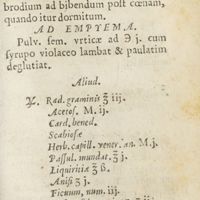 brodium ad bibendum post cœnam,
quando itur dormitum.
AD EMPYEMA.
Pulv. sem. vrticæ ad ℈ j. cum
syrupo violaceo lambat & paulatim
deglutiat.
Aliud.
℞. Rad. graminis ℥ iij.
Acetos. M. ij.
Card. bened.
Scabiosæ
Herb. capill. vener. an. M. j.
Passul. mundat. ℥ j.
Liquiritiæ ℥ ß.
Anisi ʒ j.
Ficuum, num. iij.